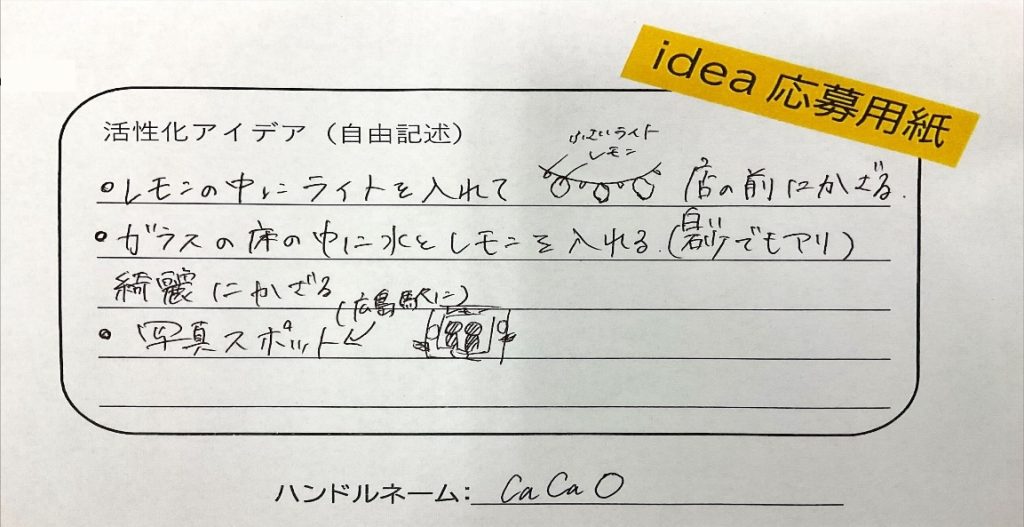 idea 応募用紙
活性化アイデア（自由記述）
ライト
レモン
・レモンの中にライトを入れて 店の前にかざる.
・ガラスの床の中に水とレモンを入れる.(砂でもアリ)
綺麗にかざる
(広島駅に)
・写真スポット
ハンドルネーム: CaCaO